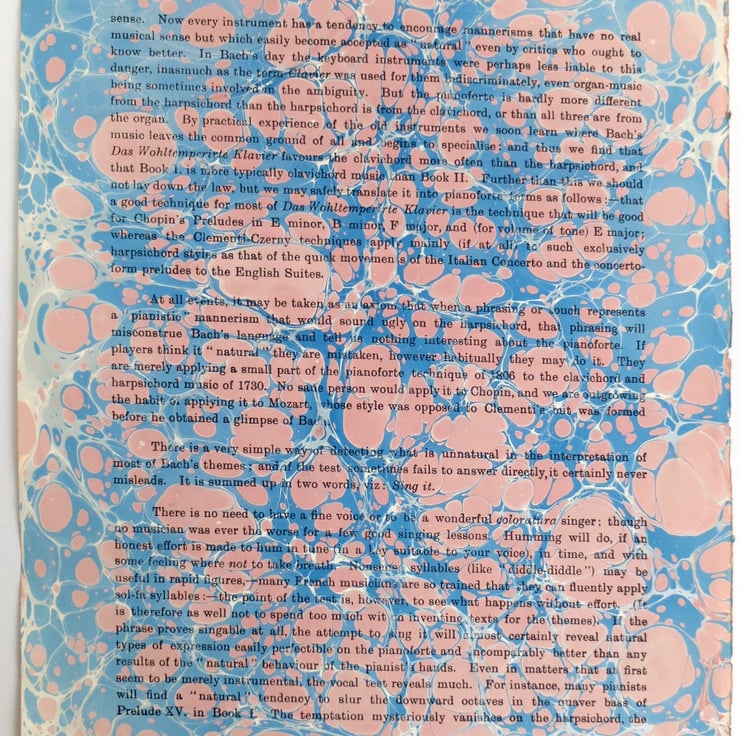 sense. Now every instrument has a tendency to encourage mannerisms that have no real
musical sense but which easily become accepted as "natural" even by critics who ought to
know better. In Bach's day the keyboard instruments were perhaps less liable to this
danger, inasmuch as the term Clavier was used for them indiscriminately, even organ-music
being sometimes involved in the ambiguity. But the pianoforte is hardly more different
from the harpsichord than the harpsichord is from the clavichord, or than all three are from
the organ. By practical experience of the old instruments we soon learn where Bach's
music leaves the common ground of all and begins to specialise: and thus we find that
Das Wohltemperirte Klavier favours the clavichord more often than the harpsichord, and
that Book I. is more typically clavichord music than Book II. Further than this we should
not lay down the law, but we may safely translate it into pianoforte terms as follows:—that
a good technique for most of Das Wohltemperirte Klavier is the technique that will be good
for Chopin's Preludes in E minor, B minor, F major, and (for volume of tone) E major;
whereas the Clementi-Czerny techniques apply mainly (if at all) to such exclusively
harpsichord styles as that of the quick movements of the Italian Concerto and the concerto-
form preludes to the English Suites.
At all events, it may be taken as an axiom that when a phrasing or touch represents
a "pianistic" mannerism that would sound ugly on the harpsichord, that phrasing will
misconstrue Bach's language and tell us nothing interesting about the pianoforte. If
players think it "natural" they are mistaken, however habitually they may do it. They
are merely applying a small part of the pianoforte technique of 1806 to the clavichord and
harpsichord music of 1730. No sane person would apply it to Chopin, and we are outgrowing
the habit of applying it to Mozart, whose style was opposed to Clementi's but was formed
before he obtained a glimpse of Bach.
There is a very simple way of detecting what is unnatural in the interpretation of
most of Bach's themes; and if the test sometimes fails to answer directly, it certainly never
misleads. It is summed up in two words, viz: Sing it.
There is no need to have a fine voice or to be a wonderful coloratura singer; though
no musician was ever the worse for a few good singing lessons. Humming will do, if an
honest effort is made to hum in tune (in a key suitable to your voice), in time, and with
some feeling where not to take breath. Nonsense syllables (like "diddle-diddle") may be
useful in rapid figures,—many French musicians are so trained that they can fluently apply
sol-fa syllables:—the point of the test is, however, to see what happens without effort. (It
is therefore as well not to spend too much wit in inventing texts for the themes). If the
phrase proves singable at all, the attempt to sing it will almost certainly reveal natural
types of expression easily perfectible on the pianoforte and incomparably better than any
results of the "natural" behaviour of the pianist's hands. Even in matters that at first
seem to be merely instrumental, the vocal test reveals much. For instance, many pianists
will find a "natural" tendency to slur the downward octaves in the quaver bass of
Prelude XV. in Book I. The temptation mysteriously vanishes on the harpsichord, the